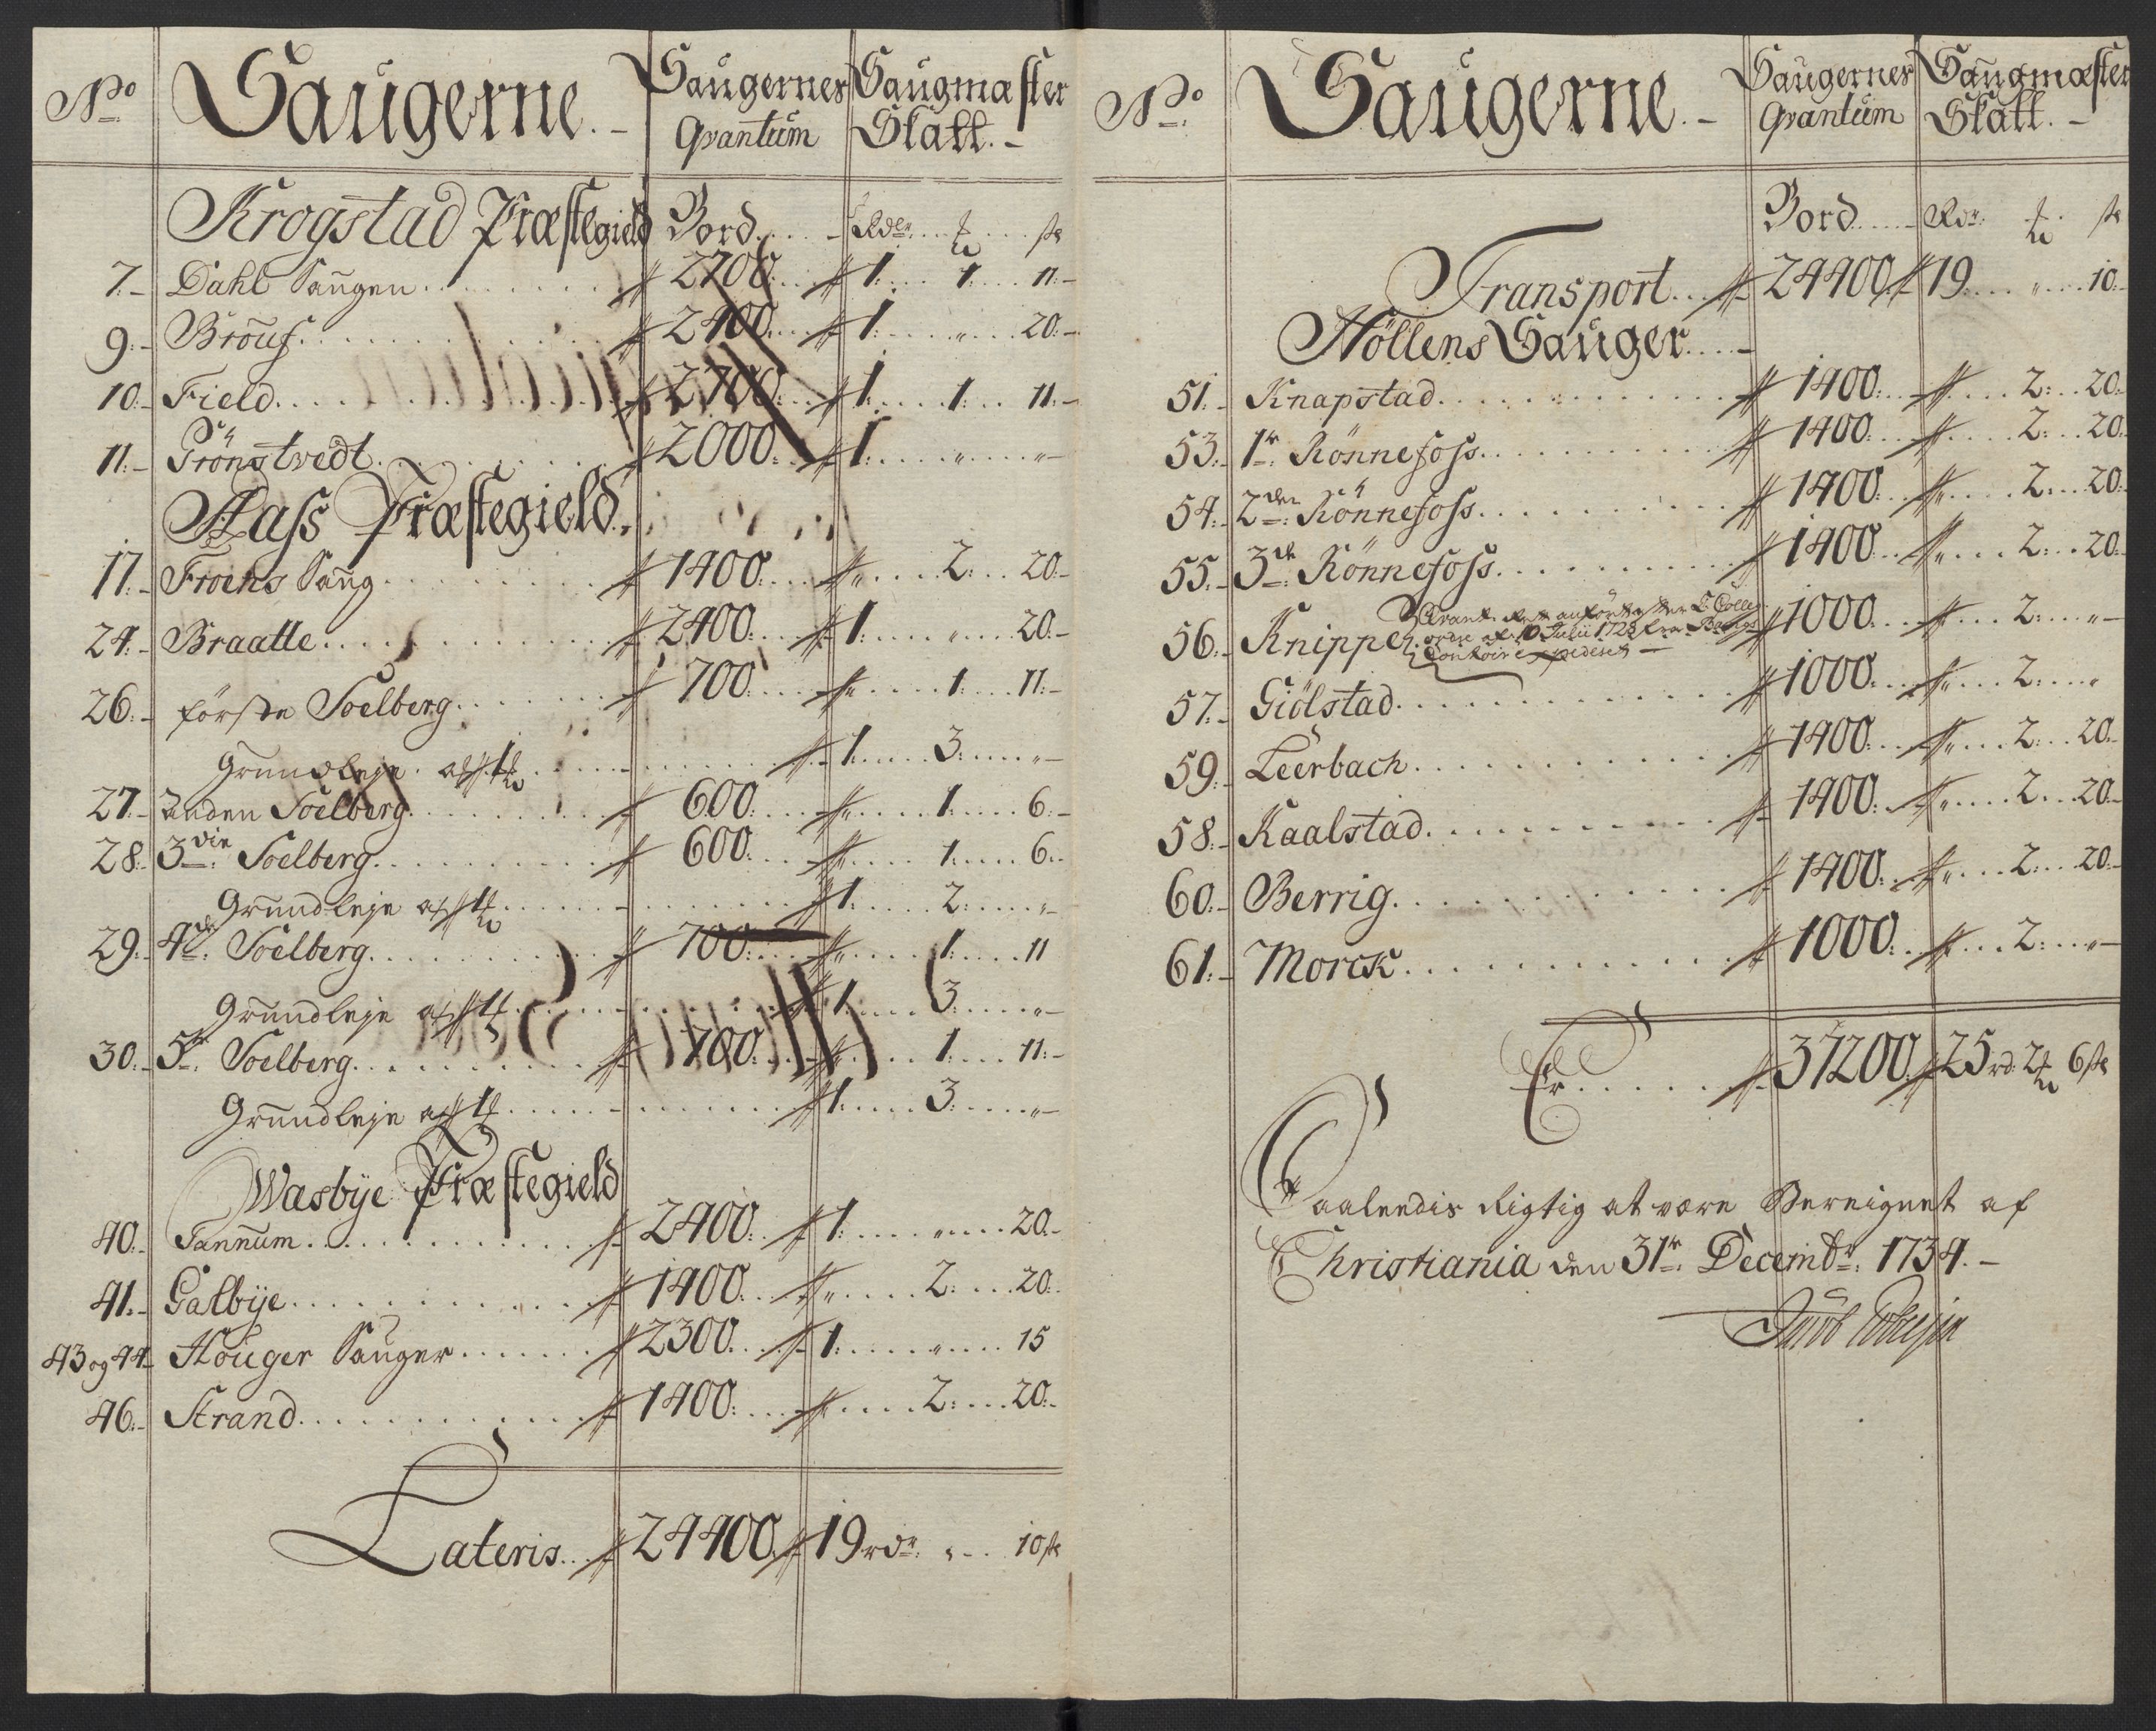 No Saugerne. Saugernes Qvantum Saugmæster Skatt.
Krogstad Præstegield Bord Rdr. ℔ sk
7. Dahl Saugen 2700. 1. 1. 11.
9. Brouf 2400. 1. „ 20.
10. Field 2700. 1. 1. 11.
11. Grönstvedt 2000. 1. „ „
Aass Præstegield.
17. Froens Saug 1400. „ 2. 20.
24. Braatte 2400. 1. „ 20.
26. förste Soelberg 700. „ 1. 11.
Grundleje 1. 3. „
27. anden Soelberg 600. „ 1. 6.
28. 3die Soelberg 600. „ 1. 6.
Grundleje 1. 2. „
29. 4de Soelberg 700. „ 1. 11
Grundleje 1. 3. „
30. 5te Soelberg 700. „ 1. 11.
Grundleje 1. 3. „
Wæsbye Præstegield
40. Sannum 2400. 1. „ 20.
41. Galbye 1400. „ 2. 20.
43 og 44 Houger Sauger 2300. 1. „ 15
46. Strand 1400. „ 2. 20.
Lateris 24400. 19 rdr. „ 10 sk
No Saugerne. Saugernes Qvantum Saugmæster Skatt.
Bord Rdr. ℔ sk
Transport 24400. 19. „ 10.
Höllens Sauger
51. Knapstad 1400. 2. 20.
53. 1te Rönnefoss 1400. 2. 20.
54. 2den Rönnefoss 1400. „ 2. 20.
55. 3die Rönnefoss 1400. „ 2. 20.
56. Knippen 1000. „ 2. „
ordre af 10 Julii 1728 fra
Contoir expederet
57. Giölstad 1000. „ 2. „
59. Leerbach 1400. „ 2. 20.
58. Kaalstad 1400. „ 2. 20.
60. Berrig 1400. „ 2. 20.
61. Morck 1000. 2. „
Er 37200. 25 rd 2 ℔ 6 sk
Saaleedis Rigtig at være Bereignet af
Christiania den 31te Decembr. 1734.